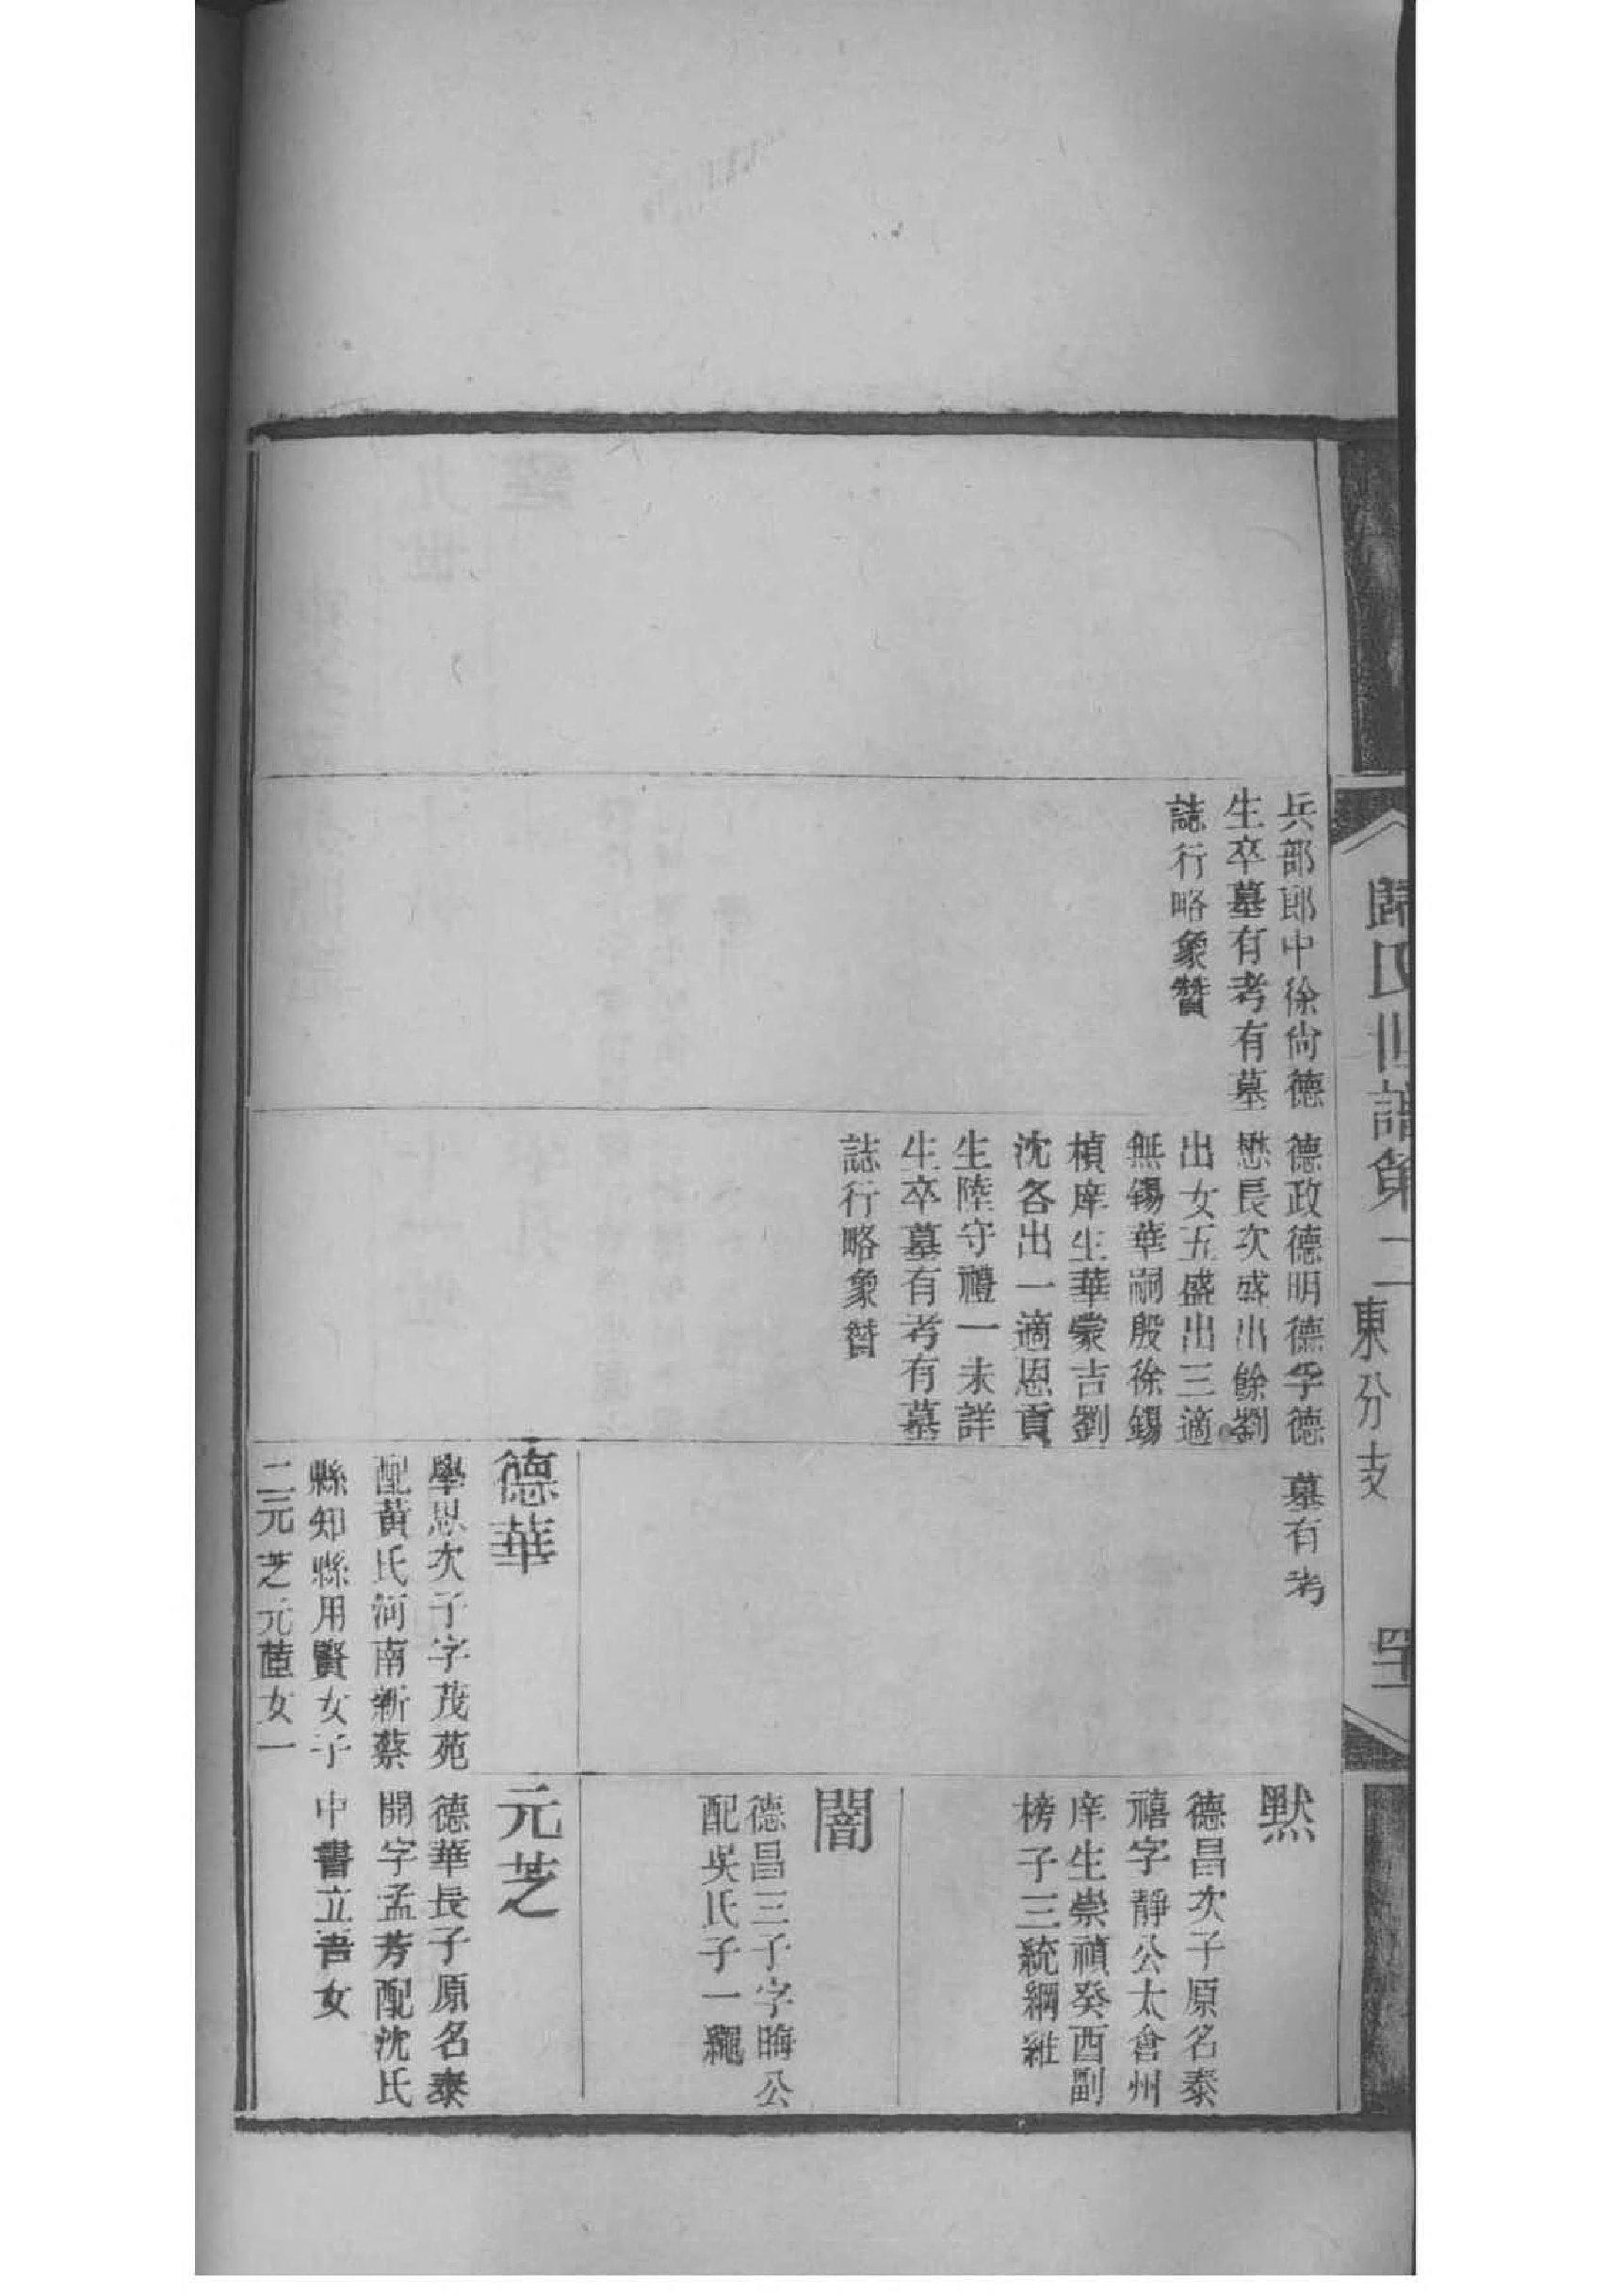 兵部郎中徐尙德
生卒墓有考有墓
誌行略象贊
德政德明德孚德
懋長次盛出餘劉
出女五盛出三適
無錫華嗣殷徐錫
楨庠生華蒙吉劉
沈各出一適恩貢
生陸守禮一未詳
生卒墓有考有墓
誌行略象贊
墓有考
德華
學思次子字茂苑
配黃氏河南新蔡
縣知縣用賢女子
二元芝元萓女一
默
德昌次子原名泰
禧字靜公太倉州
庠生崇禎癸酉副
榜子三統綱維
闇
德昌三子字晦公
配吳氏子一繩
元芝
德華長子原名泰
開字孟芳配沈氏
中書立吾女
氏世譜第二
東分支